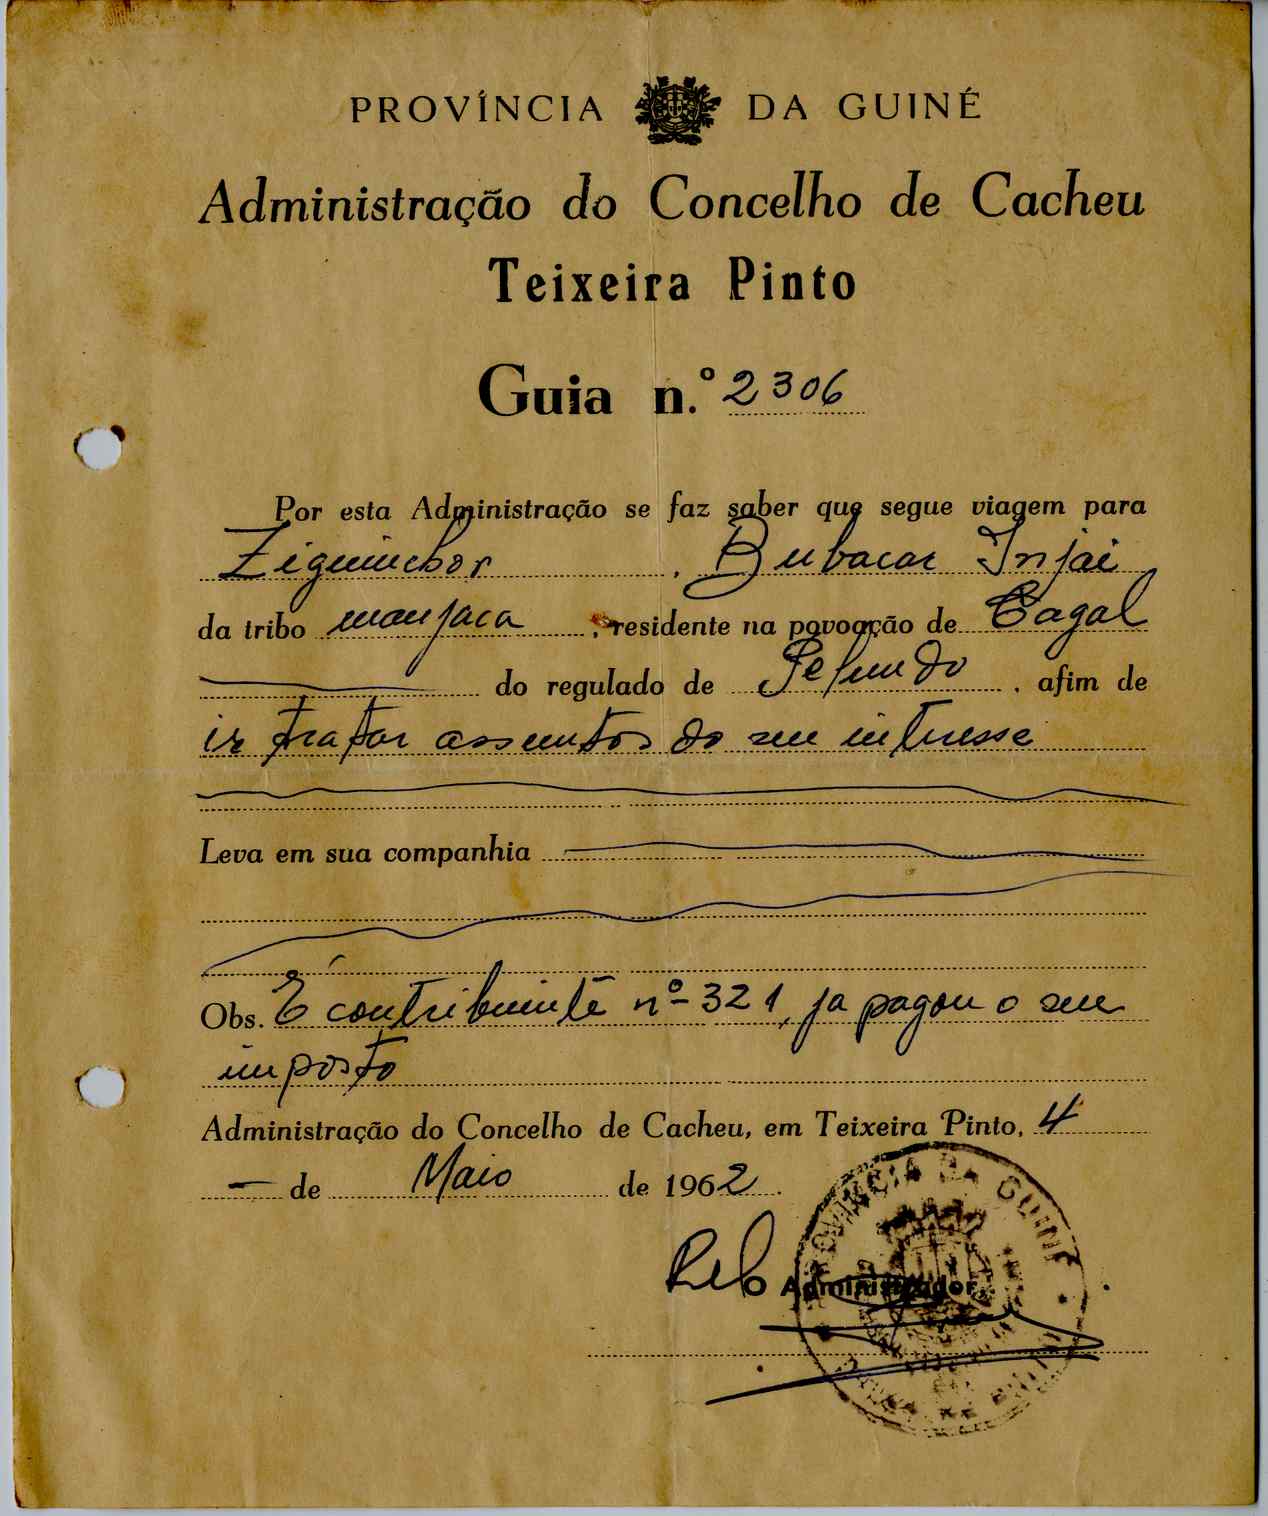 PROVÍNCIA DA GUINÉ
Administração do Concelho de Cacheu
Teixeira Pinto
Guia n.º 2306
Por esta Administração se faz saber que segue viagem para
Ziguinchor, Bubacar Injai
da tribo manjaca, residente na povoação de Cagal
do regulado de Pelundo, afim de
ir tratar assuntos do seu intresse
Leva em sua companhia
Obs. É contribuinte nº 321, ja pagou o seu
imposto
Administração do Concelho de Cacheu, em Teixeira Pinto, 4
— de Maio de 1962.
O Administrador,
PROVINCIA DA GUINÉ